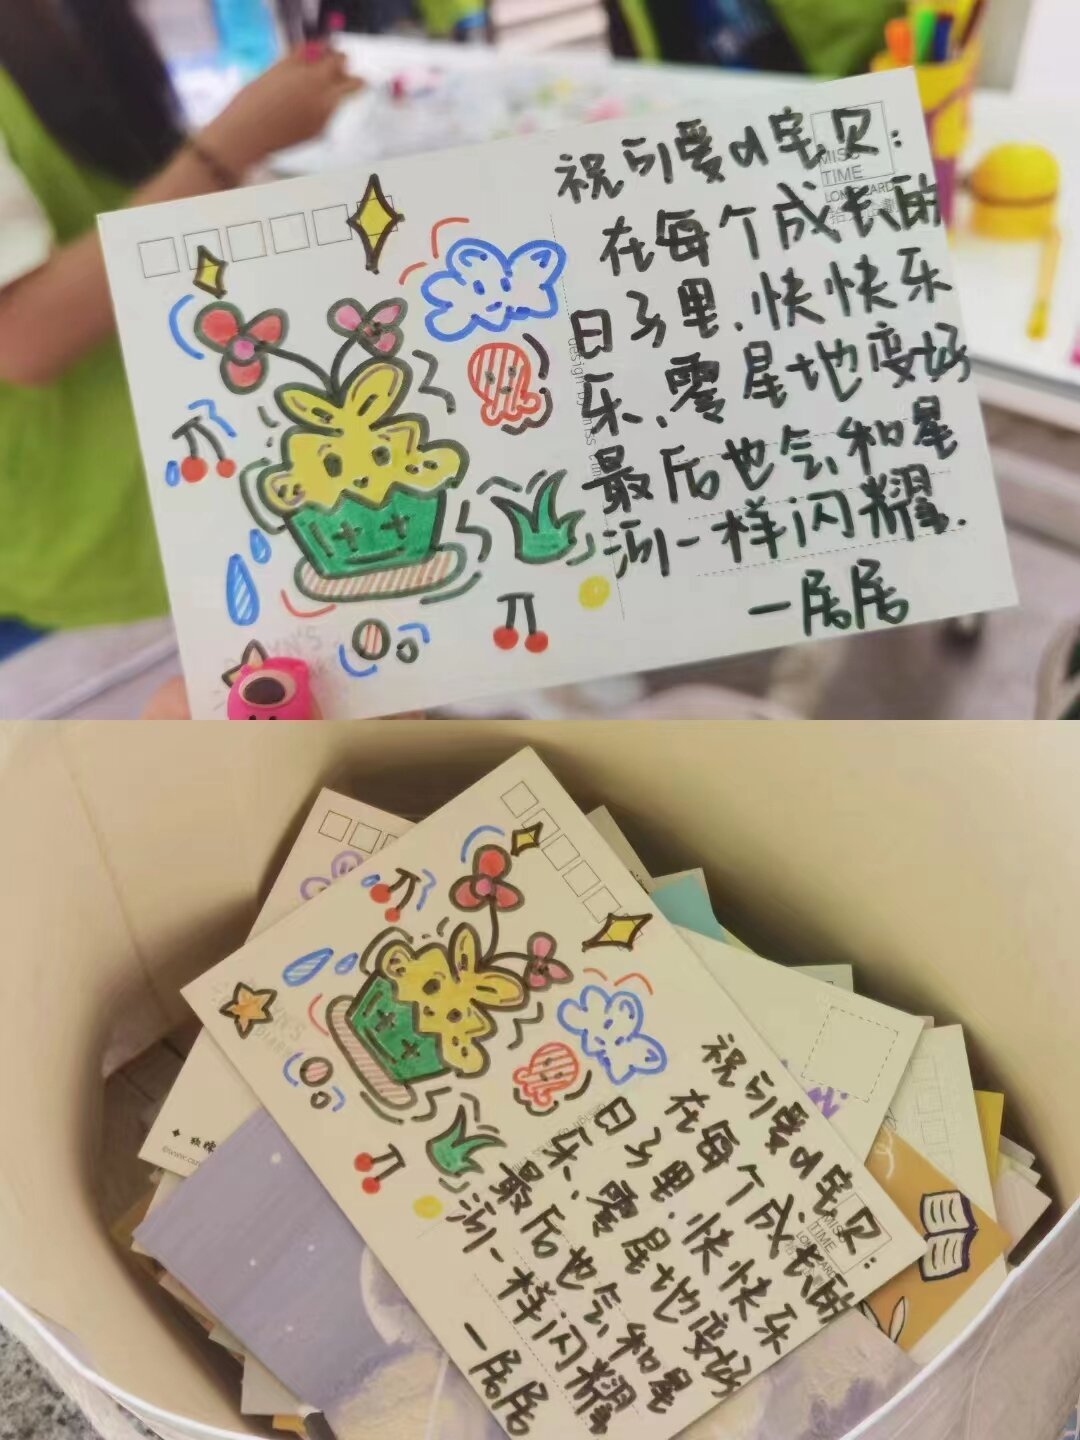 祝可爱d宝贝：
在每个成长的
日子里、快快乐
乐、零星地变好
最后也会和星
河一样闪耀.
—居居
MISS
TIME
LOMO CARD
祝可爱d宝贝：
在每个成长的
日子里、快快乐
乐、零星地变好
最后也会和星
河一样闪耀
—居居
MISS
TIME
LOMO CARD